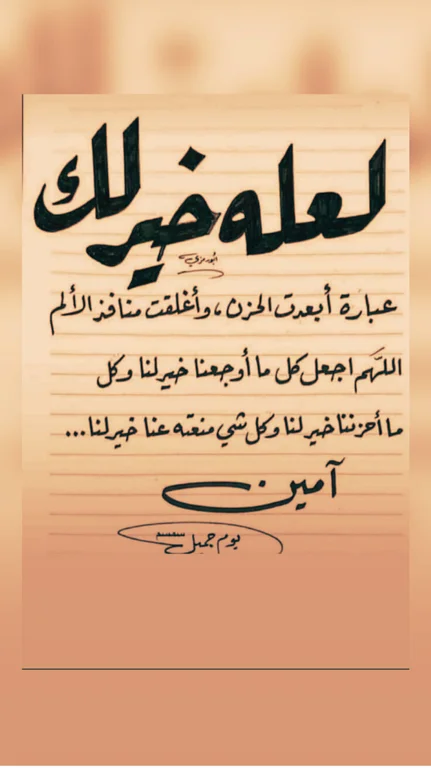 لعله خير لك
أبو رمزي
عبارة أبعدت الحزن، وأغلقت منافذ الألم
اللَّهم اجعل كل ما أوجعنا خير لنا وكل
ما أحزننا خير لنا وكل شي منعته عنا خير لنا...
آمين
يوم جميل